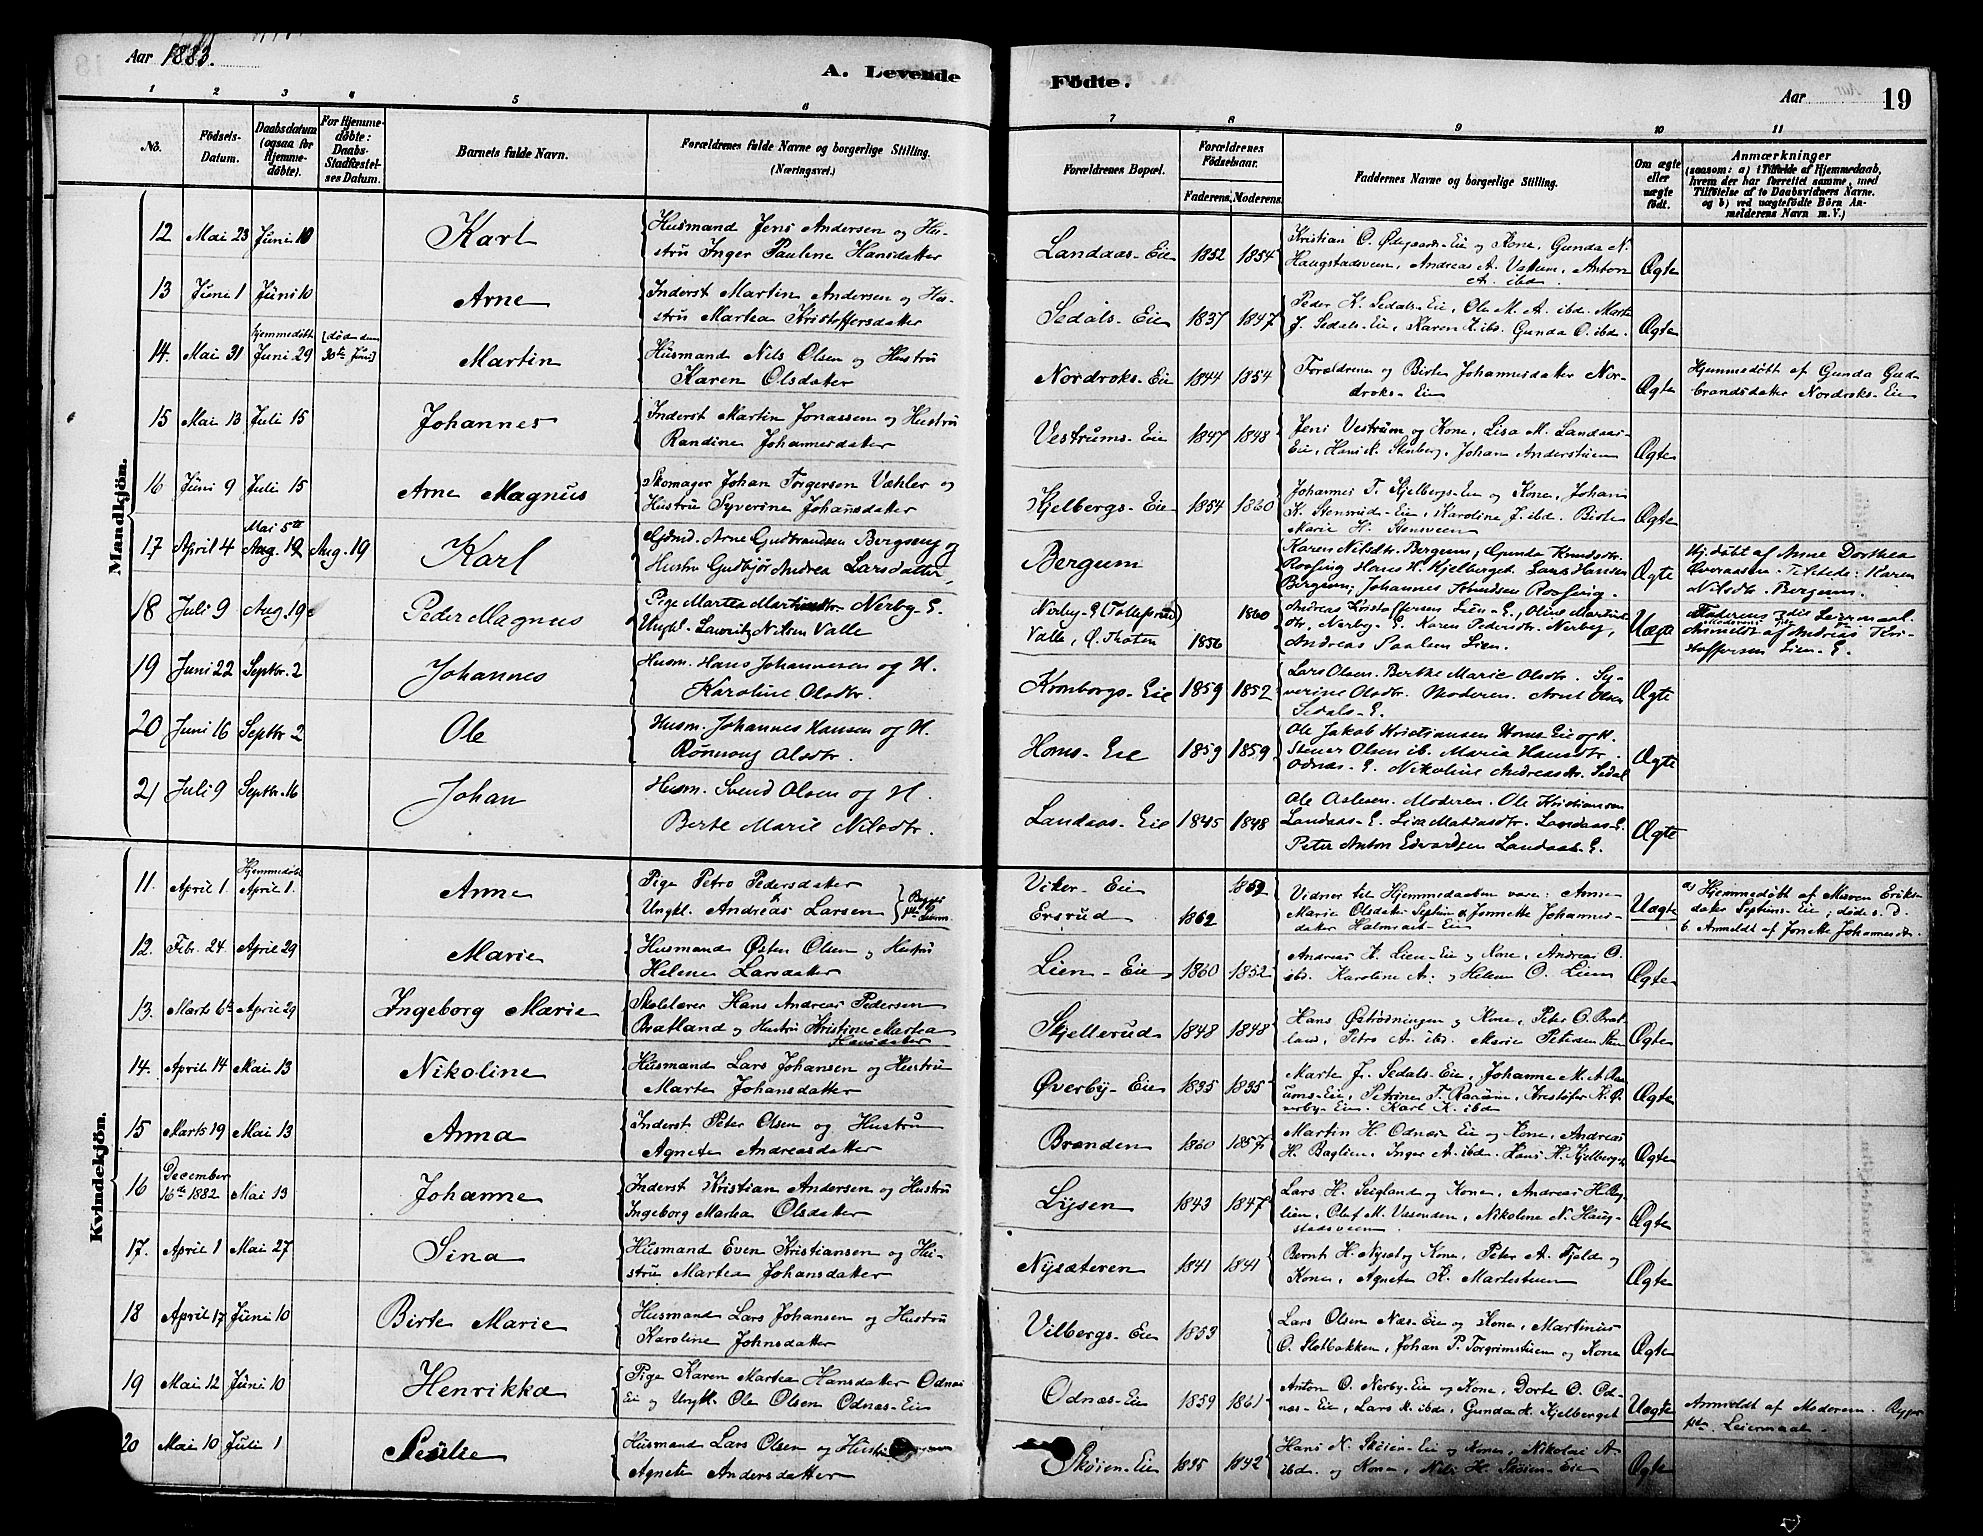 Aar 1883.
A. Levende Födte.
Aar 19
1 2 3 4 5 6 7 8 9 10 11
No. Födsels-Datum. Daabsdatum (ogsaa for Hjemmedøbte). For Hjemmedøbte: Daabs-Stadfæstelses Datum. Barnets fulde Navn. Forældrenes fulde Navne og borgerlige Stilling. (Næringsvei.) Forældrenes Bopæl. Forældrenes Födselsaar. Faderens. Moderens. Faddernes Navne og borgerlige Stilling. Om ægte eller uægte födt. Anmærkninger (saasom: a) i Tilfælde af Hjemmedaab, hvem der har forrettet samme, med Tilføielse af to Daabsvidners Navne. og b) ved uægtefödte Börn Anmelderens Navn m. V.)
Mandkjön.
12 Mai 23 Juni 10 Karl Husmand Jens Andersen og Hu-
stru Inger Pauline Hansdatter Landaas-Eie 1852 1854 Kristian O. Ødegaards-Eie og Kone, Gunda N.
Haugstadsveen, Andreas A. Vattum, Anton
A. ibd. Ægte
13 Juni 1 Juni 10 Arne Inderst Martin Andersen og Hu-
stru Martea Kristoffersdatter Sedals-Eie 1837 1847 Peder K. Sedals-Eie, Ole M. A. ibd. Marte
J. Sedals-Eie, Karen K. ibd. Gunda O. ibd. Ægte
14. Mai 31 hjemmedøbt Juni 29 (død den 30te Juni) Martin Husmand Nils Olsen og Hustru
Karen Olsdatter Nordroks-Eie 1844 1854 Forældrene og Birte Johannesdatter Nor-
droks-Eie Ægte Hjemmedøbt af Gunda Gud-
brandsdatter Nordroks-Eie
15 Mai 13 Juli 15 Johannes Inderst Martin Jonassen og Hustru
Randine Johannesdatter Vestrums-Eie 1847 1848 Jens Vestrum og Kone, Lisa M. Landaas-
Eie, Hans K. Stenberg, Johan Anderstuen Ægte
16 Juni 9 Juli 15 Arne Magnus Skomager Johan Torgersen Væhler og
Hustru Syverine Johansdatter Kjelbergs-Eie 1854 1860 Johannes T. Kjelbergs-Eie og Kone, Johans
K. Stensrud-Eie, Karoline J. ibd. Birte
Marie H. Stensveen Ægte
17 April 4 Mai 5te Aug. 19 Aug. 19 Karl Gjdmd. Arne Gudbrandsen Bergseng og
Hustru Gudbjør Andrea Larsdatter, Bergum Karen Nilsdtr. Bergum, Gunda Knudsdtr.
Hans H. Kjelberget Lars Hansen
Bergum, Johannes Knudsen Ægte Hj.døbt af Anne Dorthea
Overaasen. Tilstede: Karen
Nilsdtr. Bergum.
18 Juli 9 Aug. 19 Peder Magnus Pige Martea Martinsdtr. Nerby-E.
Ungk. Lauritz Nilsen Valle Nerby-E (Tollefsrud) 1860
Valle, Ø. Thoten 1856 Andreas Kristoffersen Lien-E, Oline Martins-
dtr, Nerby-E. Karen Pedersdtr. Nerby,
Andreas Paulsen Lien. Uægte Faderens 2det Leiermaal.
Moderens
Anmeldt af Andreas Kri-
stoffersen Lien-E.
19 Juni 22 Septbr. 2 Johannes Husm. Hans Johannesen og H.
Karoline Olsdtr. Kronborgs-Eie 1859 1852 Lars Olsen. Berthe Marie Olsdtr. Sy-
verine Olsdtr. Moderen. Arnt Olsen
Sedals-E. Ægte
20 Juni 16 Septbr. 2 Ole Husm. Johannes Hansen og H.
Rønnaug Olsdtr. Homs-Eie 1859 1859 Ole Jakob Kristiansen Homs-Eie og H.
Stener Olsen ib. Maria Hansdtr.
Odnæs-E. Nikoline Andreasdtr. Sedal Ægte
21 Juli 9 Septbr. 16 Johan Husm. Svend Olsen og H.
Berte Marie Nilsdtr. Landaas-Eie 1845 1848 Ole Aslesen. Moderen. Ole Kristiansen
Landaas-E. Lisa Mathiasdtr. Landaas-E.
Peter Anton Edvardsen Landaas-E. Ægte
Kvindekjön.
11. April 1. Hjemmedøbt April 1. Anne Pige Petro Pedersdatter
Ungk. Andreas Larsen Begges 1ste Leierm. Viker-Eie
Ersrud 1862 Vidner til Hjemmedaaben vare: Anne
Marie Olsdatter Septun & Jonnette Johannes-
datter Eie Uægte a) Hjemmedøbt af Maren Eriks-
datter Septuns-Eie; døde s. D.
b. Anmeldt af Jonette Johannesdtr.
12. Febr. 24. April 29 Marie Husmand Østen Olsen og Hustru
Helene Larsdatter Lien-Eie 1860 1852 Andreas K. Lien-Eie og Kone, Andreas O.
ibd. Karoline A. og Helene O. Lien Ægte
13. Marts 6te April 29 Ingeborg Marie Skolelærer Hans Andreas Pedersen
Bratland og Hustru Kristine Martea
Hansdatter Skjellerud 1848 1848 Hans Østrødningen og Kone, Peter O. Brat-
land, Petro A. ibd. Marie Petersen Ægte
14. April 14 Mai 13 Nikoline Husmand Lars Johansen og Hustru
Marte Johansdatter Øverby-Eie 1835 1835 Marte J. Sedals-Eie, Johanne M. A.
Eie, Petrine T. Kristofer K. Ø-
verby-Eie. Karl K. ibd Ægte
15 Marts 19 Mai 13 Anna Inderst Peter Olsen og Hustru
Agnete Andreasdatter Branden 1860 1857 Martin H. Odnæs Eie og Kone, Andreas
H. Baglien, Inger A. ibd. Hans H. Kjelberget Ægte
16 December 16de 1882 Mai 13 Johanne Inderst Kristian Andersen og Hustru
Ingeborg Martea Olsdatter Lysen 1843 1847 Lars H. Seigland og Kone, Andreas H.
lien, Olef M. Vasenden, Nikoline N. Haug-
stadsveen Ægte
17. April 1 Mai 27 Sina Husmand Even Kristiansen og Hu-
stru Martea Johansdatter Nysæteren 1841 1841 Bernt H. Nysæt og Kone, Peter A. Fjeld og
Kone, Agnete K. Martestuen Ægte
18 April 17 Juni 10 Birte Marie Husmand Lars Johansen og Hustru
Karoline Johnsdatter Vilbergs-Eie 1853 Lars Olsen Næs-Eie og Kone, Martinus
O. Slotbakken, Johan P. Torgrimstuen og Kone Ægte
19 Mai 12 Juni 10 Henrikka Pige Karen Martea Hansdatter Odnæs
Eie og Ungk. Ole Olsen Odnæs-Eie Odnæs-Eie 1859 1861 Anton O. Nerby-Eie og Kone, Dorte O. Od-
næs-Eie, Lars K. ibd, Gunda H. Kjelberget Uægte Anmeldt af Moderen. Begges
1ste Leiermaal.
20 Mai 10 Juli 1 Husmand Lars Olsen og Hustru
Agnete Andersdatter Skøien-Eie 1835 1842 Hans N. Skøien-Eie og Kone, Nikolai A.
ibd. og Kone, Nils H. Skøien-Eie Ægte